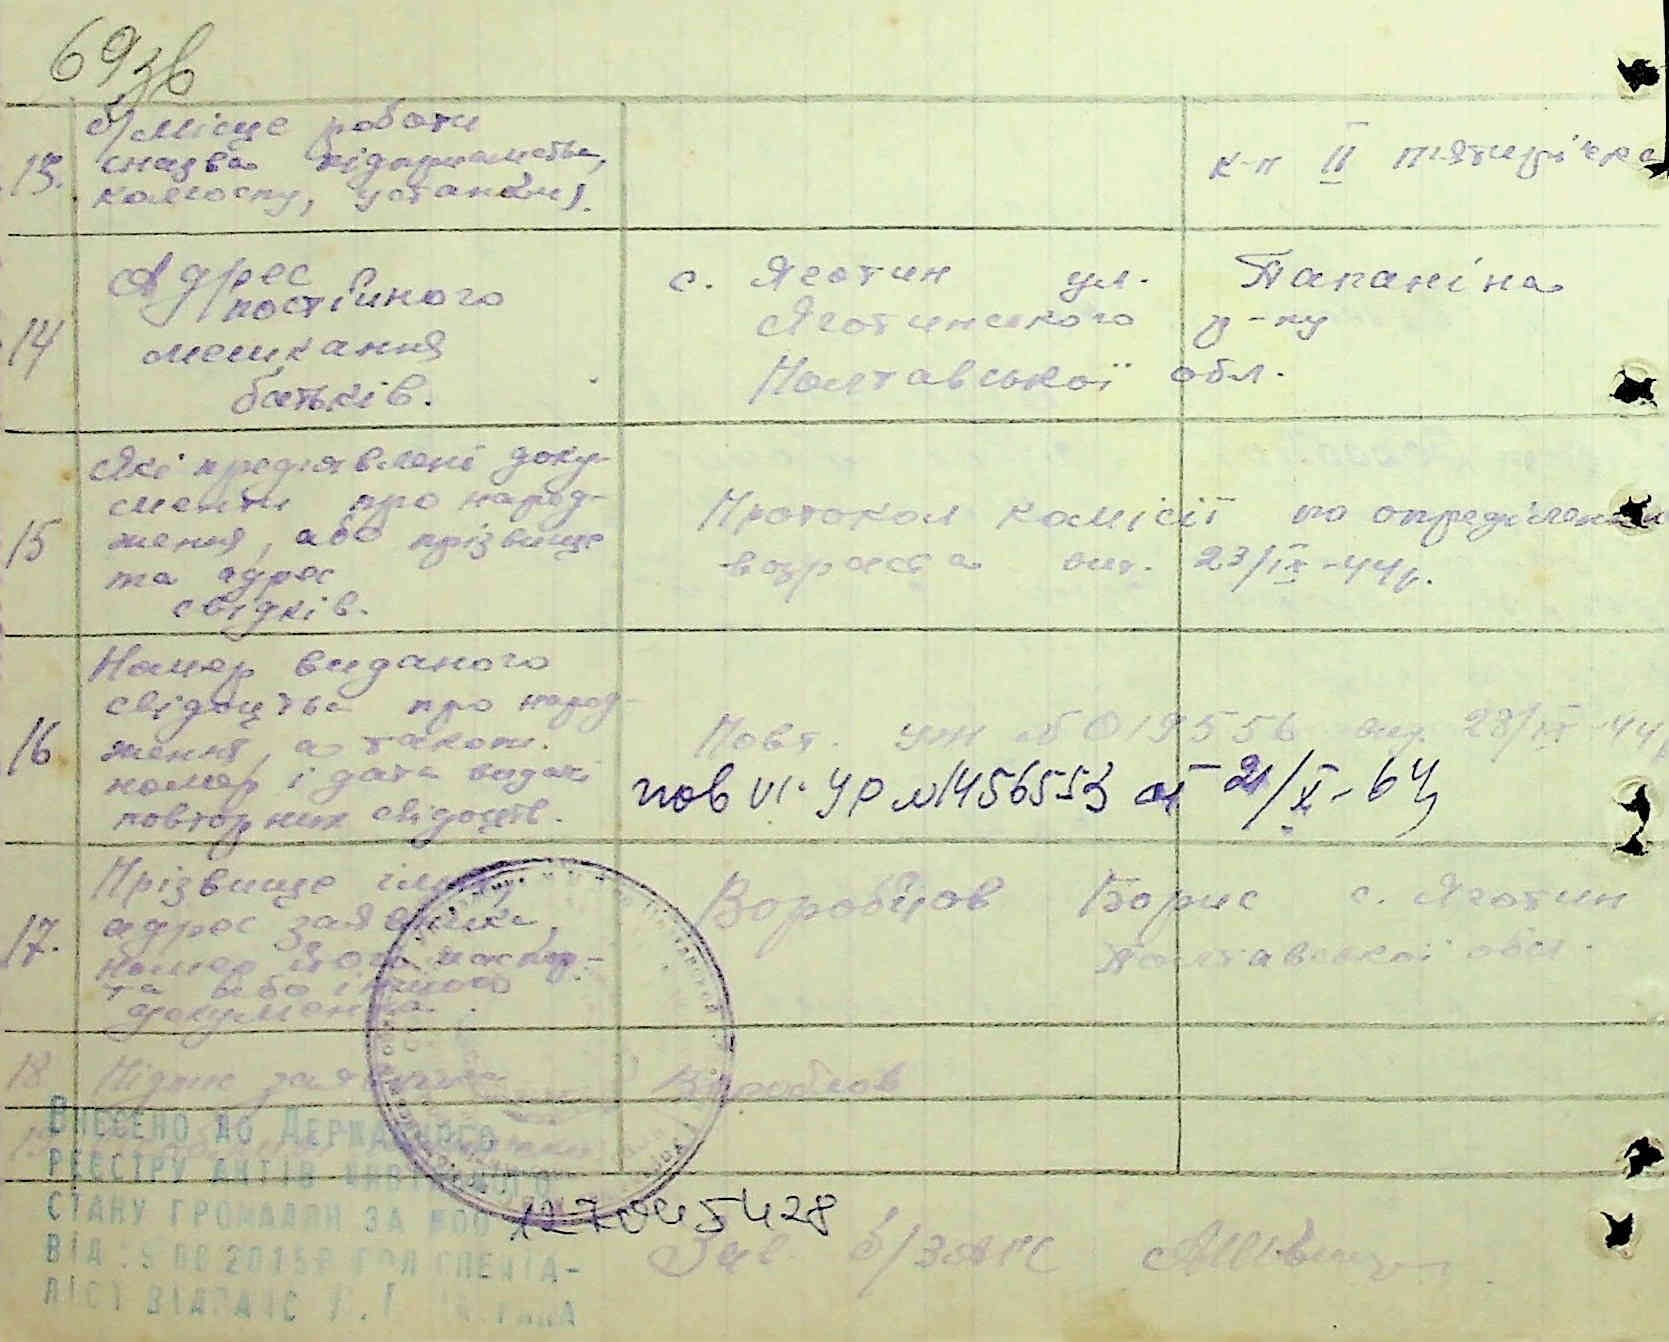 69зв
13.
б/ місце роботи
(назва підприємства,
колгоспу, установи).
к-п II пятирічка
14
Адрес
постійного
мешкання
батьків.
с. Яготин ул. Папаніна
Яготинського р-ну
Полтавської обл.
15
Які предявлені доку-
менти про народ-
ження, або прізвище
та адрес
свідків.
Протокол комісії по определению
возраста від. 23/IX-44р.
16
Номер виданого
свідоцтва про народ-
ження, а також
номер і дата видачі
повторних свідоцтв.
Повт. УЖ № 019556 від. 28/IX-44р
пов VI-УР №1456553 от 21/X-64
17.
Прізвище ім'я,
адрес заявника,
номер його паспор-
та або іншого
документа.
Воробйов Борис с. Яготин
Полтавської обл.
18
Підпис заявника
Воробйов
Внесено до Державного
реєстру актів
стану громадян за №00
1270445428
Зав. б/ЗАГС